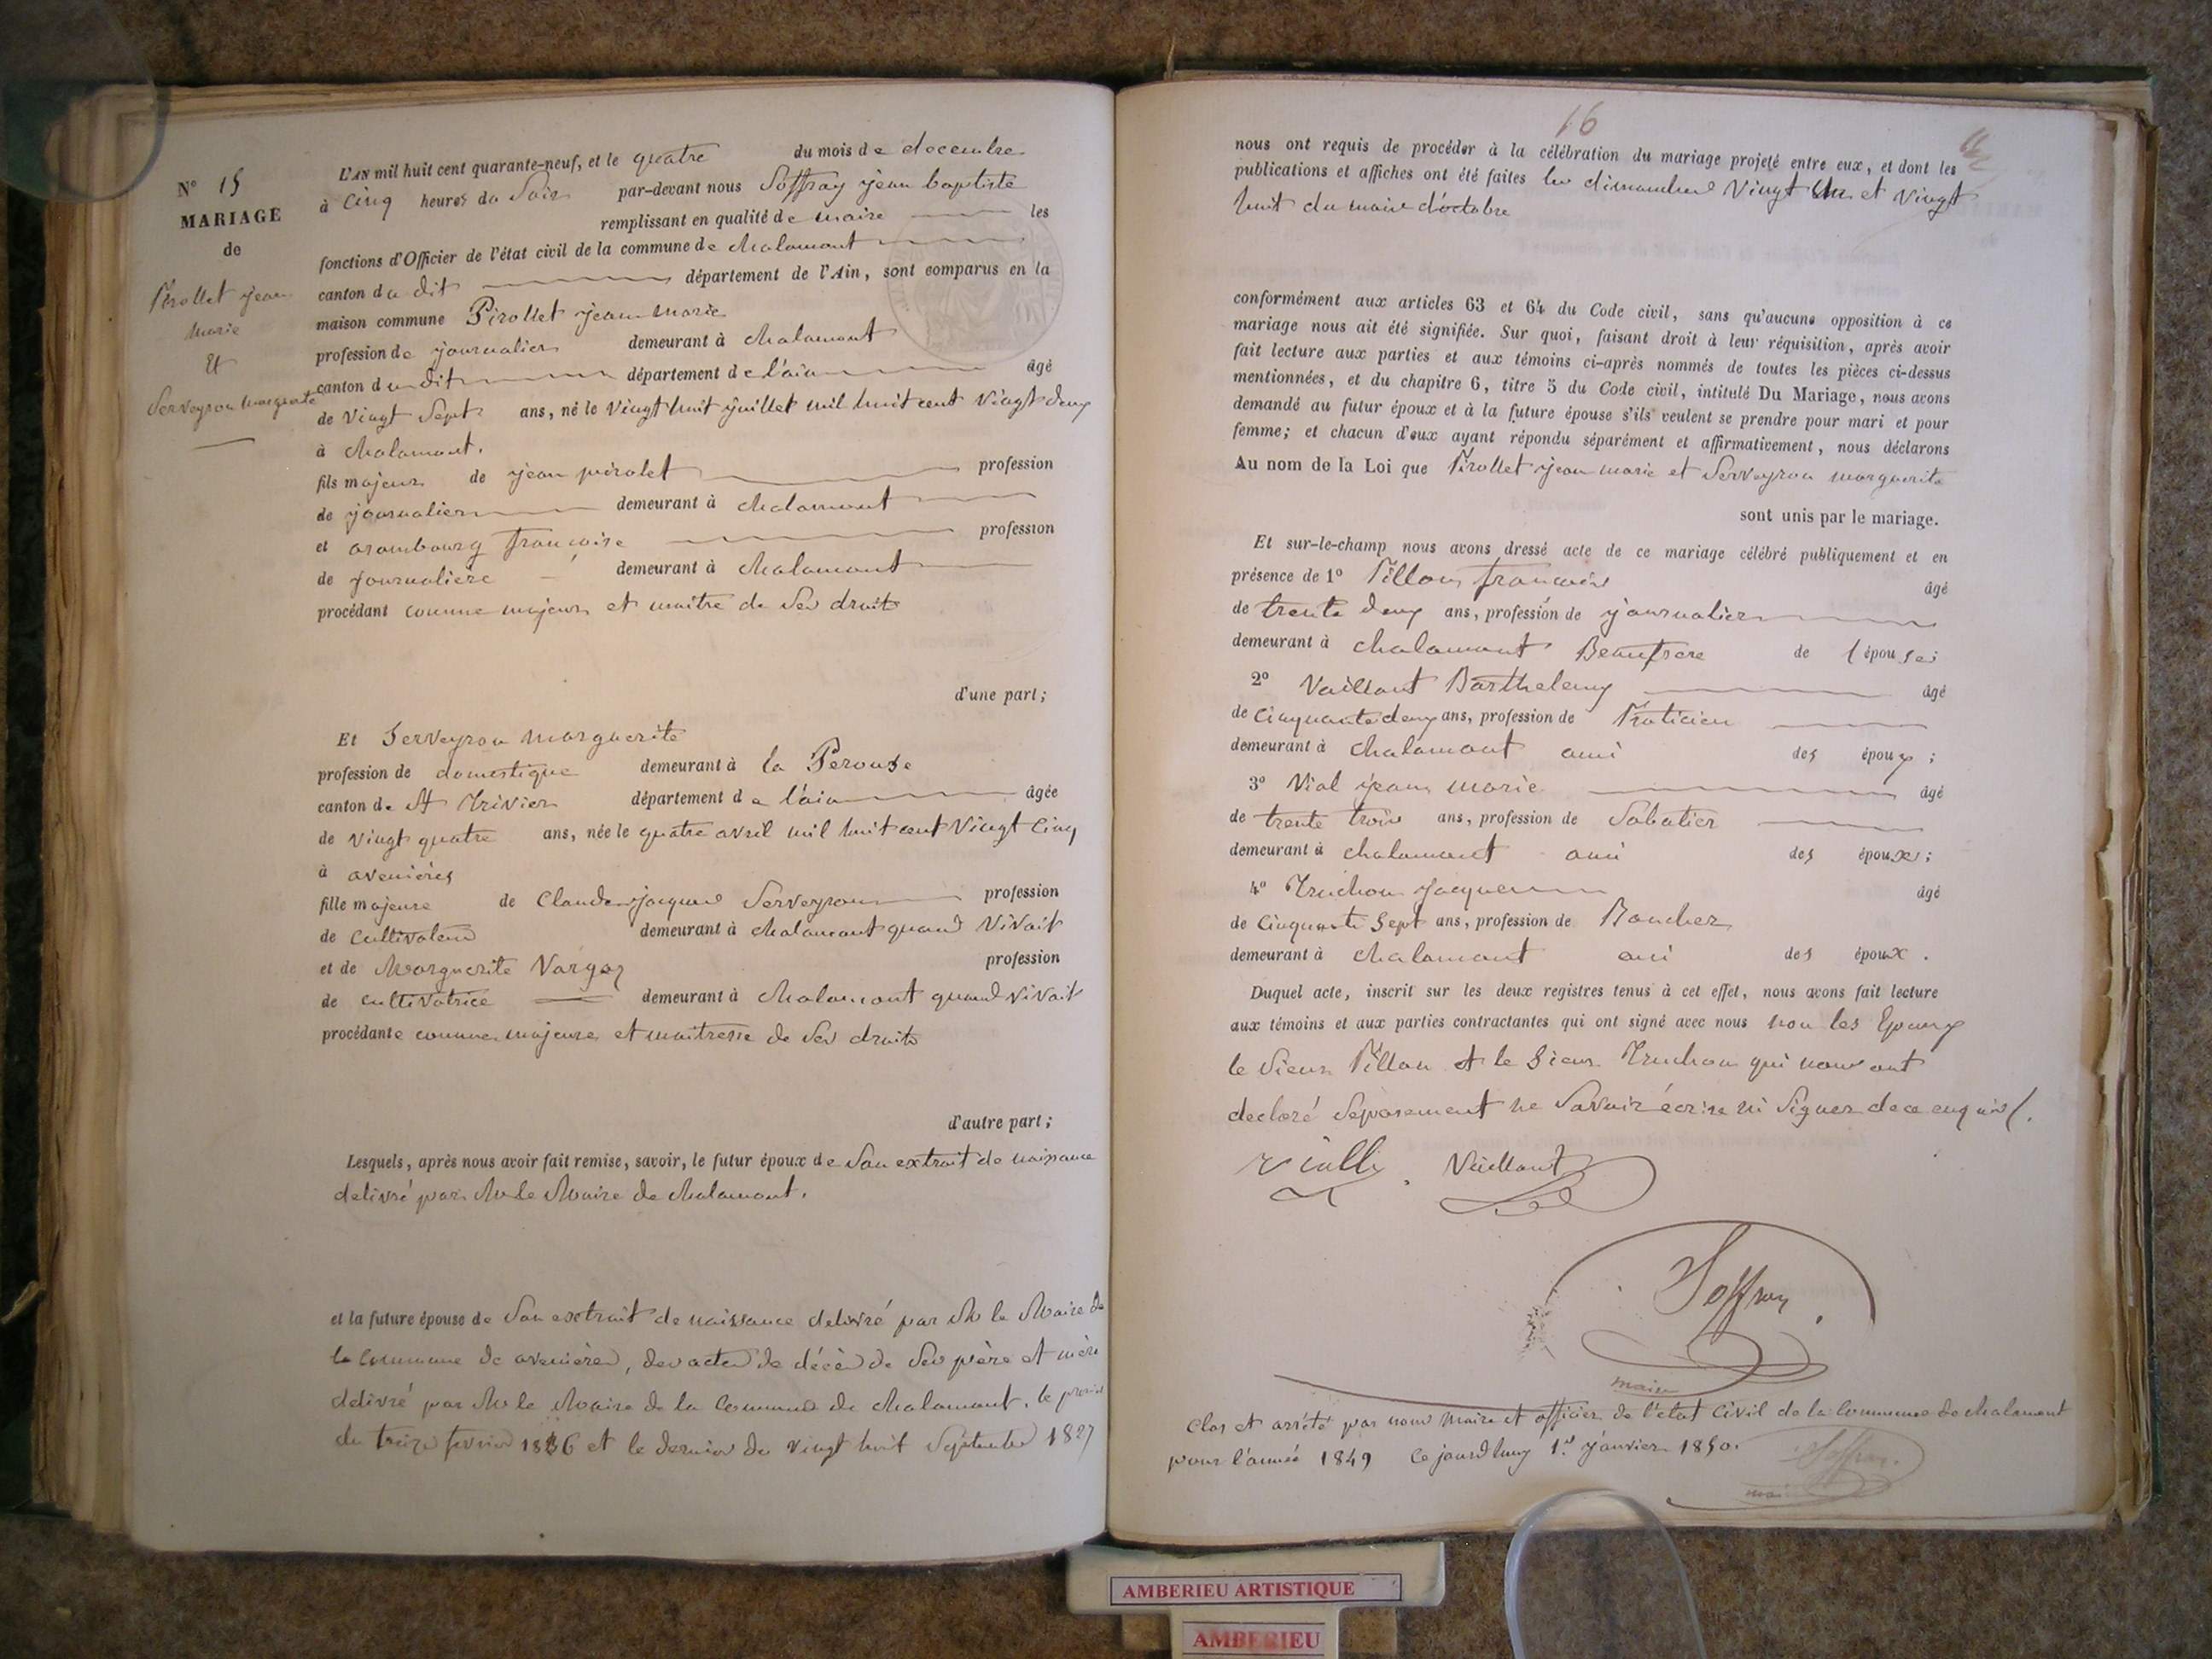 N° 15
MARIAGE
de
Pirollet jean
marie
Et
Serveyron marguerite
L'AN mil huit cent quarante-neuf, et le quatre du mois de decembre
à Cinq heures du Soir par-devant nous Soffray jean baptiste
remplissant en qualité de maire les
fonctions d'Officier de l'état civil de la commune de chalamont
canton du dit département de l'Ain, sont comparus en la
maison commune Pirollet jean marie
profession de journalier demeurant à chalamont
canton du dit département de l'ain âgé
de Vingt Sept ans, né le Vingt huit juillet mil huit cent Vingt deux
à chalamont.
fils majeur de jean pirolet profession
de journalier demeurant à chalamont
et arambourg françoise profession
de journalière demeurant à chalamont
procédant comme majeur et maitre de Ses droits
d'une part;
Et Serveyron marguerite
profession de domestique demeurant à la Perouse
canton de St Trivier département de l'ain âgée
de Vingt quatre ans, née le quatre avril mil huit cent Vingt Cinq
à avenières
fille majeure de Claude jacques Serveyron profession
de Cultivateur demeurant à chalamont quand Vivait
et de Marguerite profession
de cultivatrice demeurant à chalamont quand Vivait
procédante comme majeure et maitresse de Ses droits
d'autre part;
Lesquels, après nous avoir fait remise, savoir, le futur époux de Son extrait de naissance
delivré par Mr le Maire de chalamont.
et la future épouse de Son extrait de naissance delivré par Mr le Maire de
la Commune de avenières, des actes de décès de Ses père et mère
delivré par Mr le Maire de la Commune de chalamont, le premier
du treize fevrier et le dernier du Vingt huit Septembre 1827
16
nous ont requis de procéder à la célébration du mariage projeté entre eux, et dont les
publications et affiches ont été faites les dimanches Vingt Un et Vingt
huit du mois d'octobre
conformément aux articles 63 et 64 du Code civil, sans qu'aucune opposition à ce
mariage nous ait été signifiée. Sur quoi, faisant droit à leur réquisition, après avoir
fait lecture aux parties et aux témoins ci-après nommés de toutes les pièces ci-dessus
mentionnées, et du chapitre 6, titre 5 du Code civil, intitulé Du Mariage, nous avons
demandé au futur époux et à la future épouse s'ils veulent se prendre pour mari et pour
femme; et chacun d'eux ayant répondu séparément et affirmativement, nous déclarons
Au nom de la Loi que Pirollet jean marie et Serveyron marguerite
sont unis par le mariage.
Et sur-le-champ nous avons dressé acte de ce mariage célébré publiquement et en
présence de 1° Pillon françois âgé
de trente deux ans, profession de journalier
demeurant à chalamont Beaufrere de l'épouse;
2° Vaillant Barthelemy âgé
de Cinquante deux ans, profession de Praticien
demeurant à chalamont ami des époux;
3° Vial jean marie âgé
de trente trois ans, profession de Sabatier
demeurant à chalamont ami des époux;
4° Truchon Jacques âgé
de Cinquante Sept ans, profession de Boucher
demeurant à chalamont ami des époux.
Duquel acte, inscrit sur les deux registres tenus à cet effet, nous avons fait lecture
aux témoins et aux parties contractantes qui ont signé avec nous non les Epoux
le Sieur Pillon et le Sieur Truchon qui nous ont
declaré Séparement ne Savoir écrire ni Signer de ce enquis.
Vaillant
Soffray
maire
Clos et arrété par nous Maire et officier de l'état Civil de la Commune de chalamont
pour l'année 1849 Ce jourdhuy 1er janvier 1850.
Soffray
AMBERIEU ARTISTIQUE
AMBERIEU